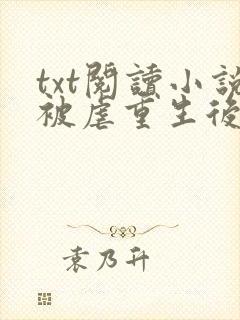 txt閱讀小說
被虐重生後
袁乃升